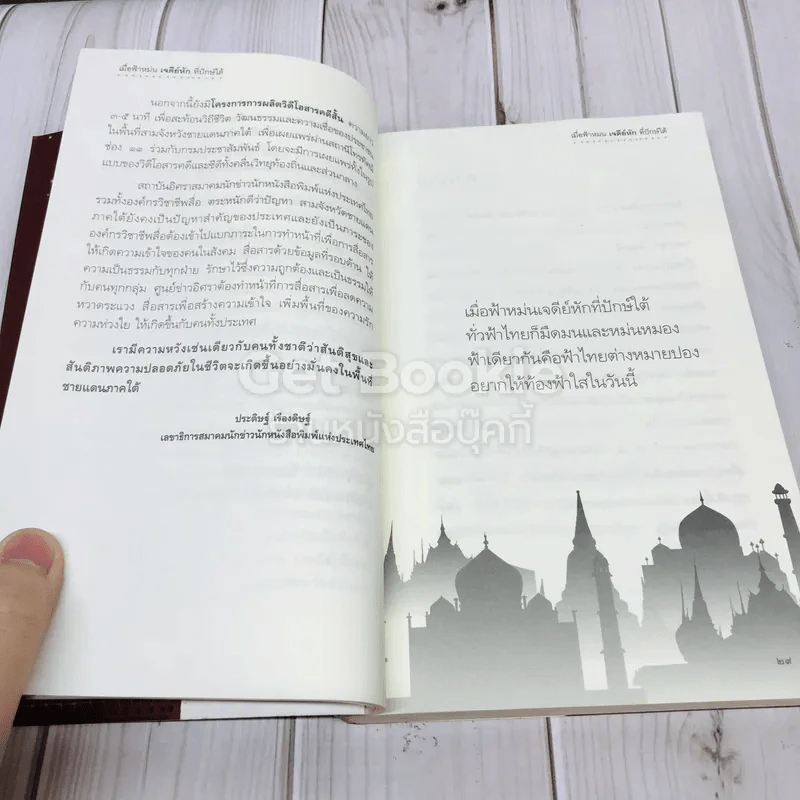 เมื่อฟ้าหม่น เจดีย์หัก ที่ปักษ์ใต้
นอกจากนี้ยังมีโครงการการผลิตวิดีโอสารคดีสั้น ความยาว
๓-๕ นาที เพื่อสะท้อนวิถีชีวิต วัฒนธรรมและความเชื่อของประชาชน
ในพื้นที่สามจังหวัดชายแดนภาคใต้ เพื่อเผยแพร่ผ่านสถานีโทรทัศน์
ช่อง ๑๑ ร่วมกับกรมประชาสัมพันธ์ โดยจะมีการเผยแพร่ทั้งในรูป
แบบของวิดีโอสารคดีและซีดีทั้งคลื่นวิทยุท้องถิ่นและส่วนกลาง
สถาบันอิศราสมาคมนักข่าวนักหนังสือพิมพ์แห่งประเทศไทย
รวมทั้งองค์กรวิชาชีพสื่อ ตระหนักดีว่าปัญหา สามจังหวัดชายแดน
ภาคใต้ยังคงเป็นปัญหาสำคัญของประเทศและยังเป็นภาระของ
องค์กรวิชาชีพสื่อต้องเข้าไปแบกภาระในการทำหน้าที่เพื่อการสื่อสาร
ให้เกิดความเข้าใจของคนในสังคม สื่อสารด้วยข้อมูลที่รอบด้าน ให้
ความเป็นธรรมกับทุกฝ่าย รักษาไว้ซึ่งความถูกต้องและเป็นธรรมให้
กับคนทุกกลุ่ม ศูนย์ข่าวอิศราต้องทำหน้าที่การสื่อสารเพื่อลดความ
หวาดระแวง สื่อสารเพื่อสร้างความเข้าใจ เพิ่มพื้นที่ของความรัก
ความห่วงใย ให้เกิดขึ้นกับคนทั้งประเทศ
เรามีความหวังเช่นเดียวกับคนทั้งชาติว่าสันติสุขและ
สันติภาพความปลอดภัยในชีวิตจะเกิดขึ้นอย่างมั่นคงในพื้นที่
ชายแดนภาคใต้
ประดิษฐ์ เรืองดิษฐ์
เลขาธิการสมาคมนักข่าวนักหนังสือพิมพ์แห่งประเทศไทย
เมื่อฟ้าหม่น เจดีย์หัก ที่ปักษ์ใต้
เมื่อฟ้าหม่นเจดีย์หักที่ปักษ์ใต้
ทั่วฟ้าไทยก็มืดมนและหม่นหมอง
ฟ้าเดียวกันคือฟ้าไทยต่างหมายปอง
อยากให้ท้องฟ้าใสในวันนี้
๒๙
Get Bookie
ร้านหนังสือบุ๊คกี้